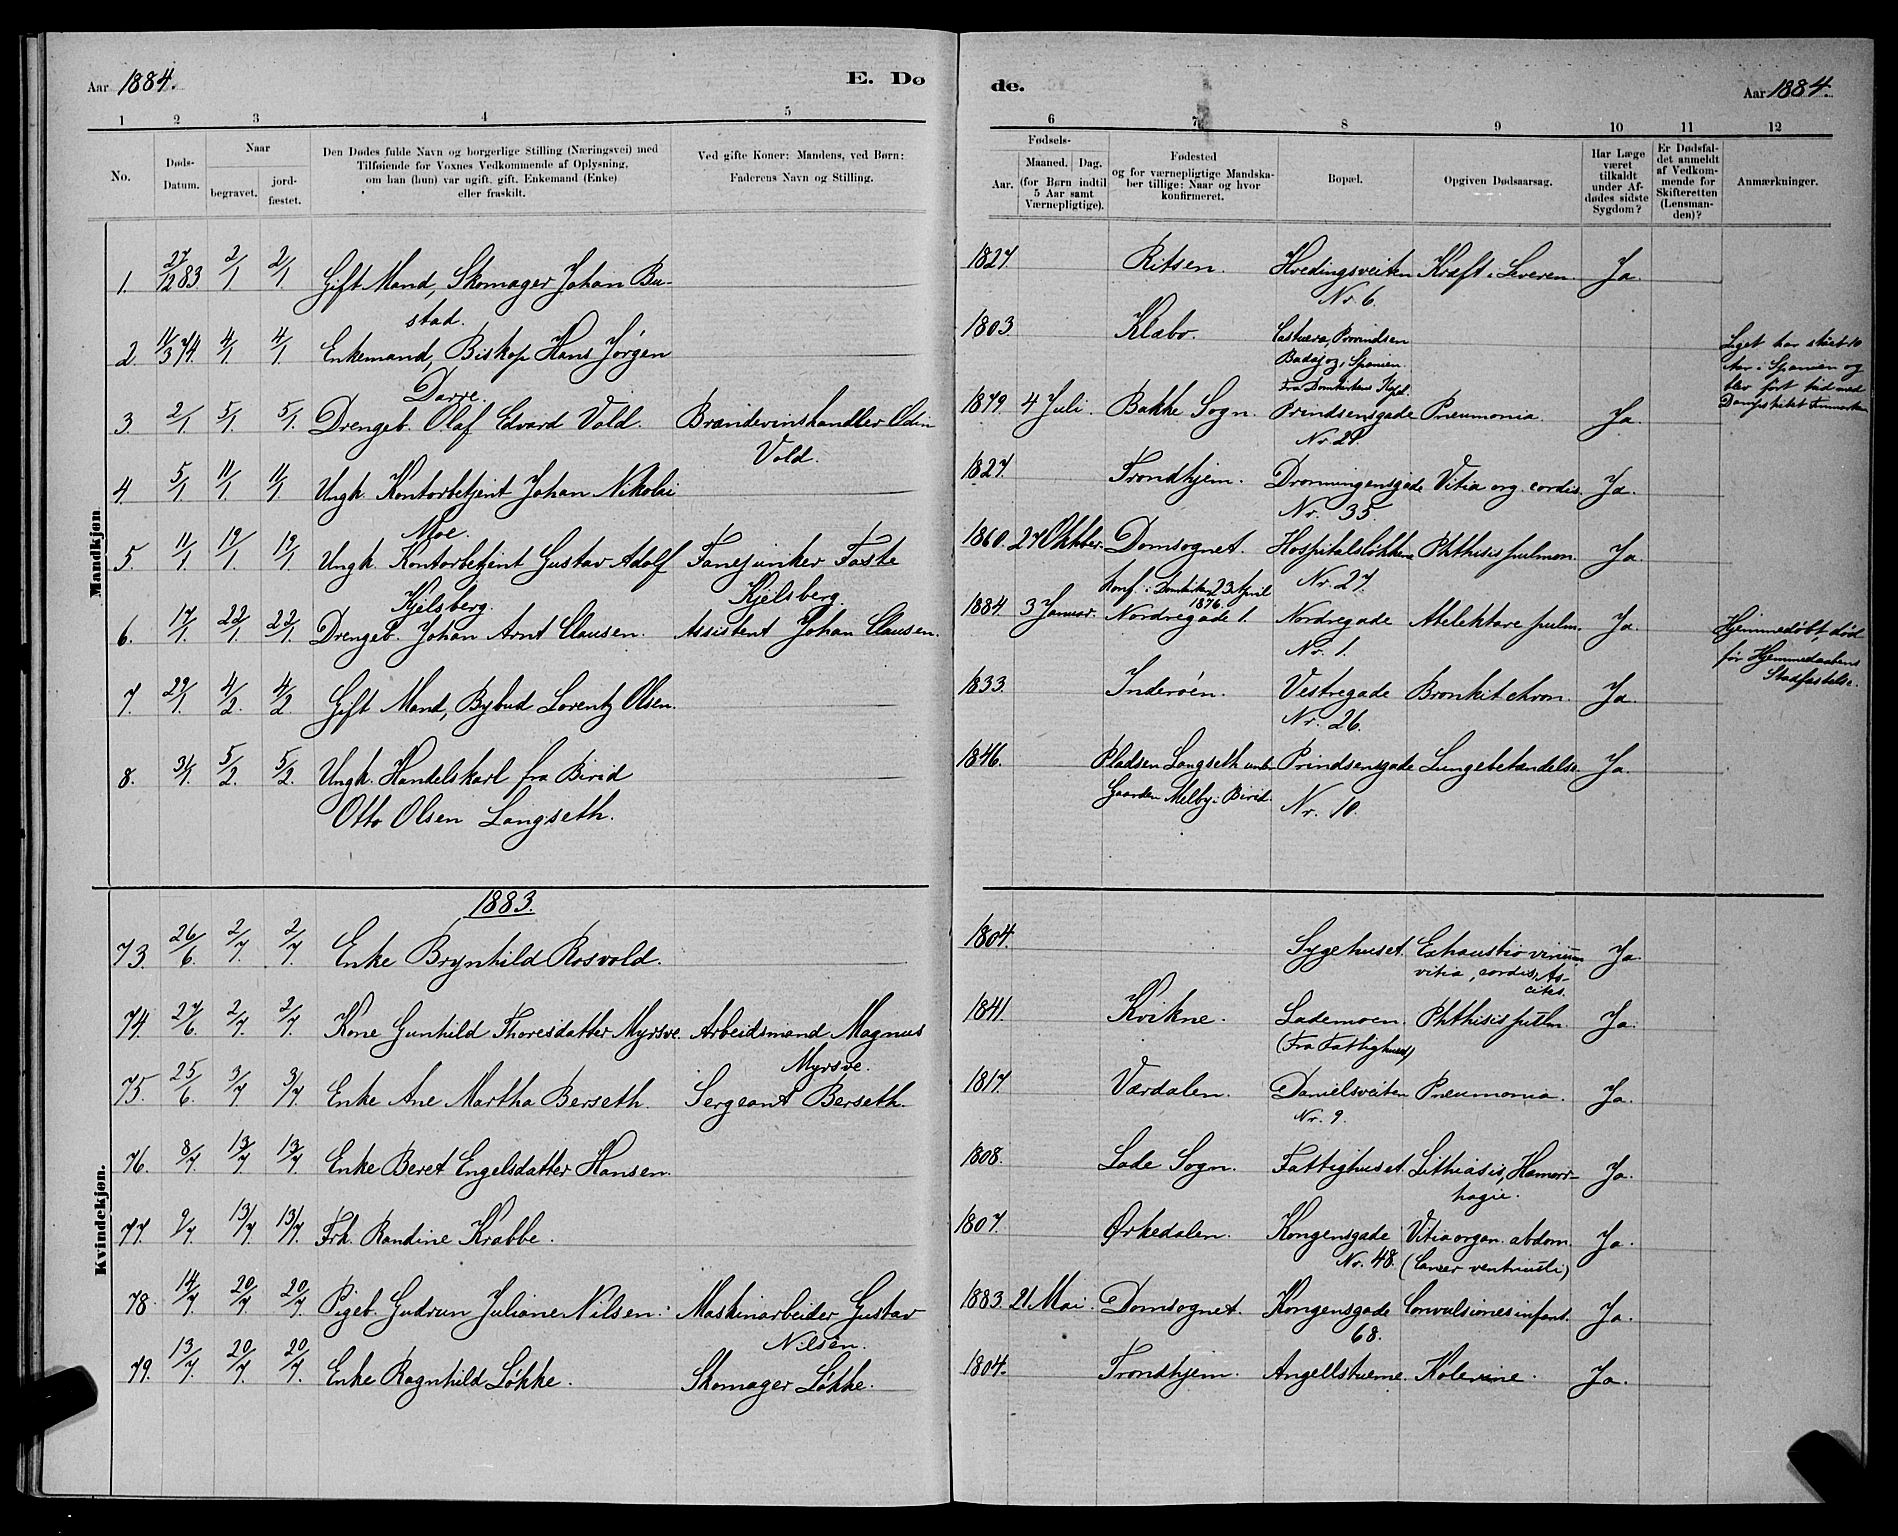 Aar 1884.
E. Dø
de.
Aar 1884.
1 2 3 4 5 6 7 8 9 10 11 12
No.
Døds-
Datum.
Naar
begravet.
jord-
fæstet.
Den Dødes fulde Navn og borgerlige Stilling (Næringsvei) med
Tilføiende for Voxnes Vedkommende af Oplysning,
om han (hun) var ugift, gift, Enkemand (Enke)
eller fraskilt.
Ved gifte Koner: Mandens, ved Børn:
Faderens Navn og Stilling.
Fødsels-
Aar.
Maaned. Dag.
(for Børn indtil
5 Aar samt
Værnepligtige).
Fødested
og for værnepligtige Mandska-
ber tillige: Naar og hvor
konfirmeret.
Bopæl.
Opgiven Dødsaarsag.
Har Læge
været
tilkaldt
under Af-
dødes sidste
Sygdom?
Er Dødsfal-
det anmeldt
af Vedkom-
mende for
Skifteretten
(Lensman-
den)?
Anmærkninger.
Mandkjøn
1. 27/12 83 2/1 2/1 Gift Mand, Skomager Johan Bu-
stad.
1827 Ritsen. Hvedingsveiten Kræft i Leveren. Ja.
Nr. 6.
2. 11/3 74. 4/1 4/1 Enkemand, Biskop Hans Jørgen
Darre.
1803. Klæbo. Provindsen
Badajoz, Spanien.
Fra Domkirkens Kapel.
Liget har staaet 10
Aar i Spanien og
blev ført hid med
Dampskibet Finmarken
3. 2/1 5/1 5/1. Drengeb. Olaf Edvard Vold. Brændevinshandler Odin
Vold.
1879. 4 Juli. Bakke Sogn. Prindsensgade Pneumonia. Ja.
Nr. 21.
4. 5/1 11/1 11/1 Ungk. Kontorbetjent Johan Nikolai
Moe.
1827. Trondhjem. Dronningensgade Vitia org. cordis. Ja.
Nr. 35.
5. 11/1 19/1 19/1 Ungk. Kontorbetjent Gustav Adolf Fanejunker Faste
Kjelsberg. Kjelsberg.
1860. 27 Oktober. Domsognet. Hospitalsløkken Phthisis pulmon. Ja.
Konf. i Domkirken 23 April
1876.
Nr. 27.
6. 17/1. 22/1 22/1 Drengeb. Johan Arnt Clausen. Assistent Johan Clausen.
1884. 3 Januar. Nordregade 1. Nordregade Atelektase pulm. Ja.
Nr. 1.
Hjemmedøbt, død
før Hjemmedaabens
Stadfæstelse.
7. 29/1. 4/2. 4/2. Gift Mand, Bybud Lorentz Olsen.
1833. Inderøen. Vestregade Bronkit chron. Ja.
Nr. 26.
8. 31/1. 5/2. 5/2. Ungk. Handelskarl fra Birid
Otto Olsen Langseth.
1846. Pladsen Langseth und. Prindsensgade Lungebetændelse. Ja.
Gaarden Melby i Birid. Nr. 10.
1883.
Kvindekjøn.
73. 26/6. 2/7. 2/7. Enke Brynhild Rosvold.
1804. Sygehuset. Exhaustio virium, Ja.
vitia, cordis, As-
cites.
74. 27/6. 2/7. 2/7. Kone Gunhild Thoresdatter Myrsve. Arbeidsmand Magnus
Myrsve.
1841. Kvikne. Lademoen. Phthisis pulm. Ja.
(Fra Fattighuset)
75. 25/6. 3/7 3/7. Enke Ane Martha Berseth. Sergeant Berseth.
1817. Værdalen. Danielsveiten Pneumonia. Ja.
Nr. 9.
76. 8/7. 13/7 13/7. Enke Beret Engelsdatter Hansen.
1808. Lade Sogn. Fattighuset. Lithiasis, Hæmorr-
hagie. Ja.
77. 9/7. 13/7 13/7. Frk. Randine Krabbe.
1807. Ørkedalen. Kongensgade Vitia organ. abdom. Ja.
Nr. 48. (Cancer ventriculi)
78. 14/7 20/7 20/7 Pigeb. Gudrun Juliane Nilsen. Maskinarbeider Gustav
Nilsen.
1883. 21 Mai. Domsognet. Kongensgade Convulsiones infant. Ja.
68.
79. 13/7. 20/7 20/7. Enke Ragnhild Løkke. Skomager Løkke.
1804. Trondhjem. Angellstuerne. Kolerine. Ja.